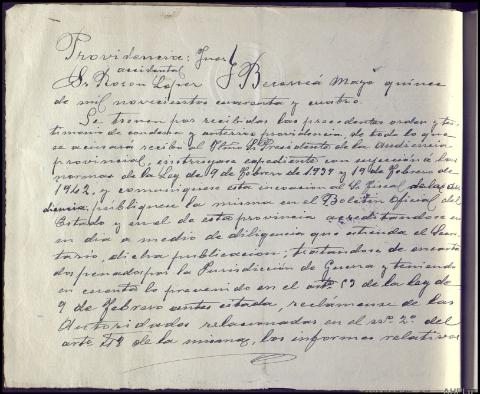 Providencia: Juez
accidental
Sr. Rocon Lopez Becerreá Mayo quince
de mil novecientos cuarenta y cuatro.
Se tienen por recibidas las precedentes orden y tes-
timonio de condena y anterior providencia, de todo lo que
se acusará recibo al Iltmo Sr. Presidente de la Audiencia
provincial; instrúyase expediente con sujeción á las
normas de la Ley de 9 de Febrero de 1939 y 19 de Febrero de
1942, y comuníquese esta incoación al Sr. Fiscal de la Au-
diencia, publíquese la misma en el Boletín Oficial del
Estado y en el de esta provincia acreditandose en
su dia a medio de diligencia que extienda el Secre-
tario, dicha publicacion; tratandose de encarta-
dos penados por la Jurisdicción de Guerra y teniendo
en cuenta lo prevenido en el artº 53 de la ley de
9 de Febrero antes citada, reclámense de las
Autoridades relacionadas en el nº 2º del
artº de la misma, los informes relativos